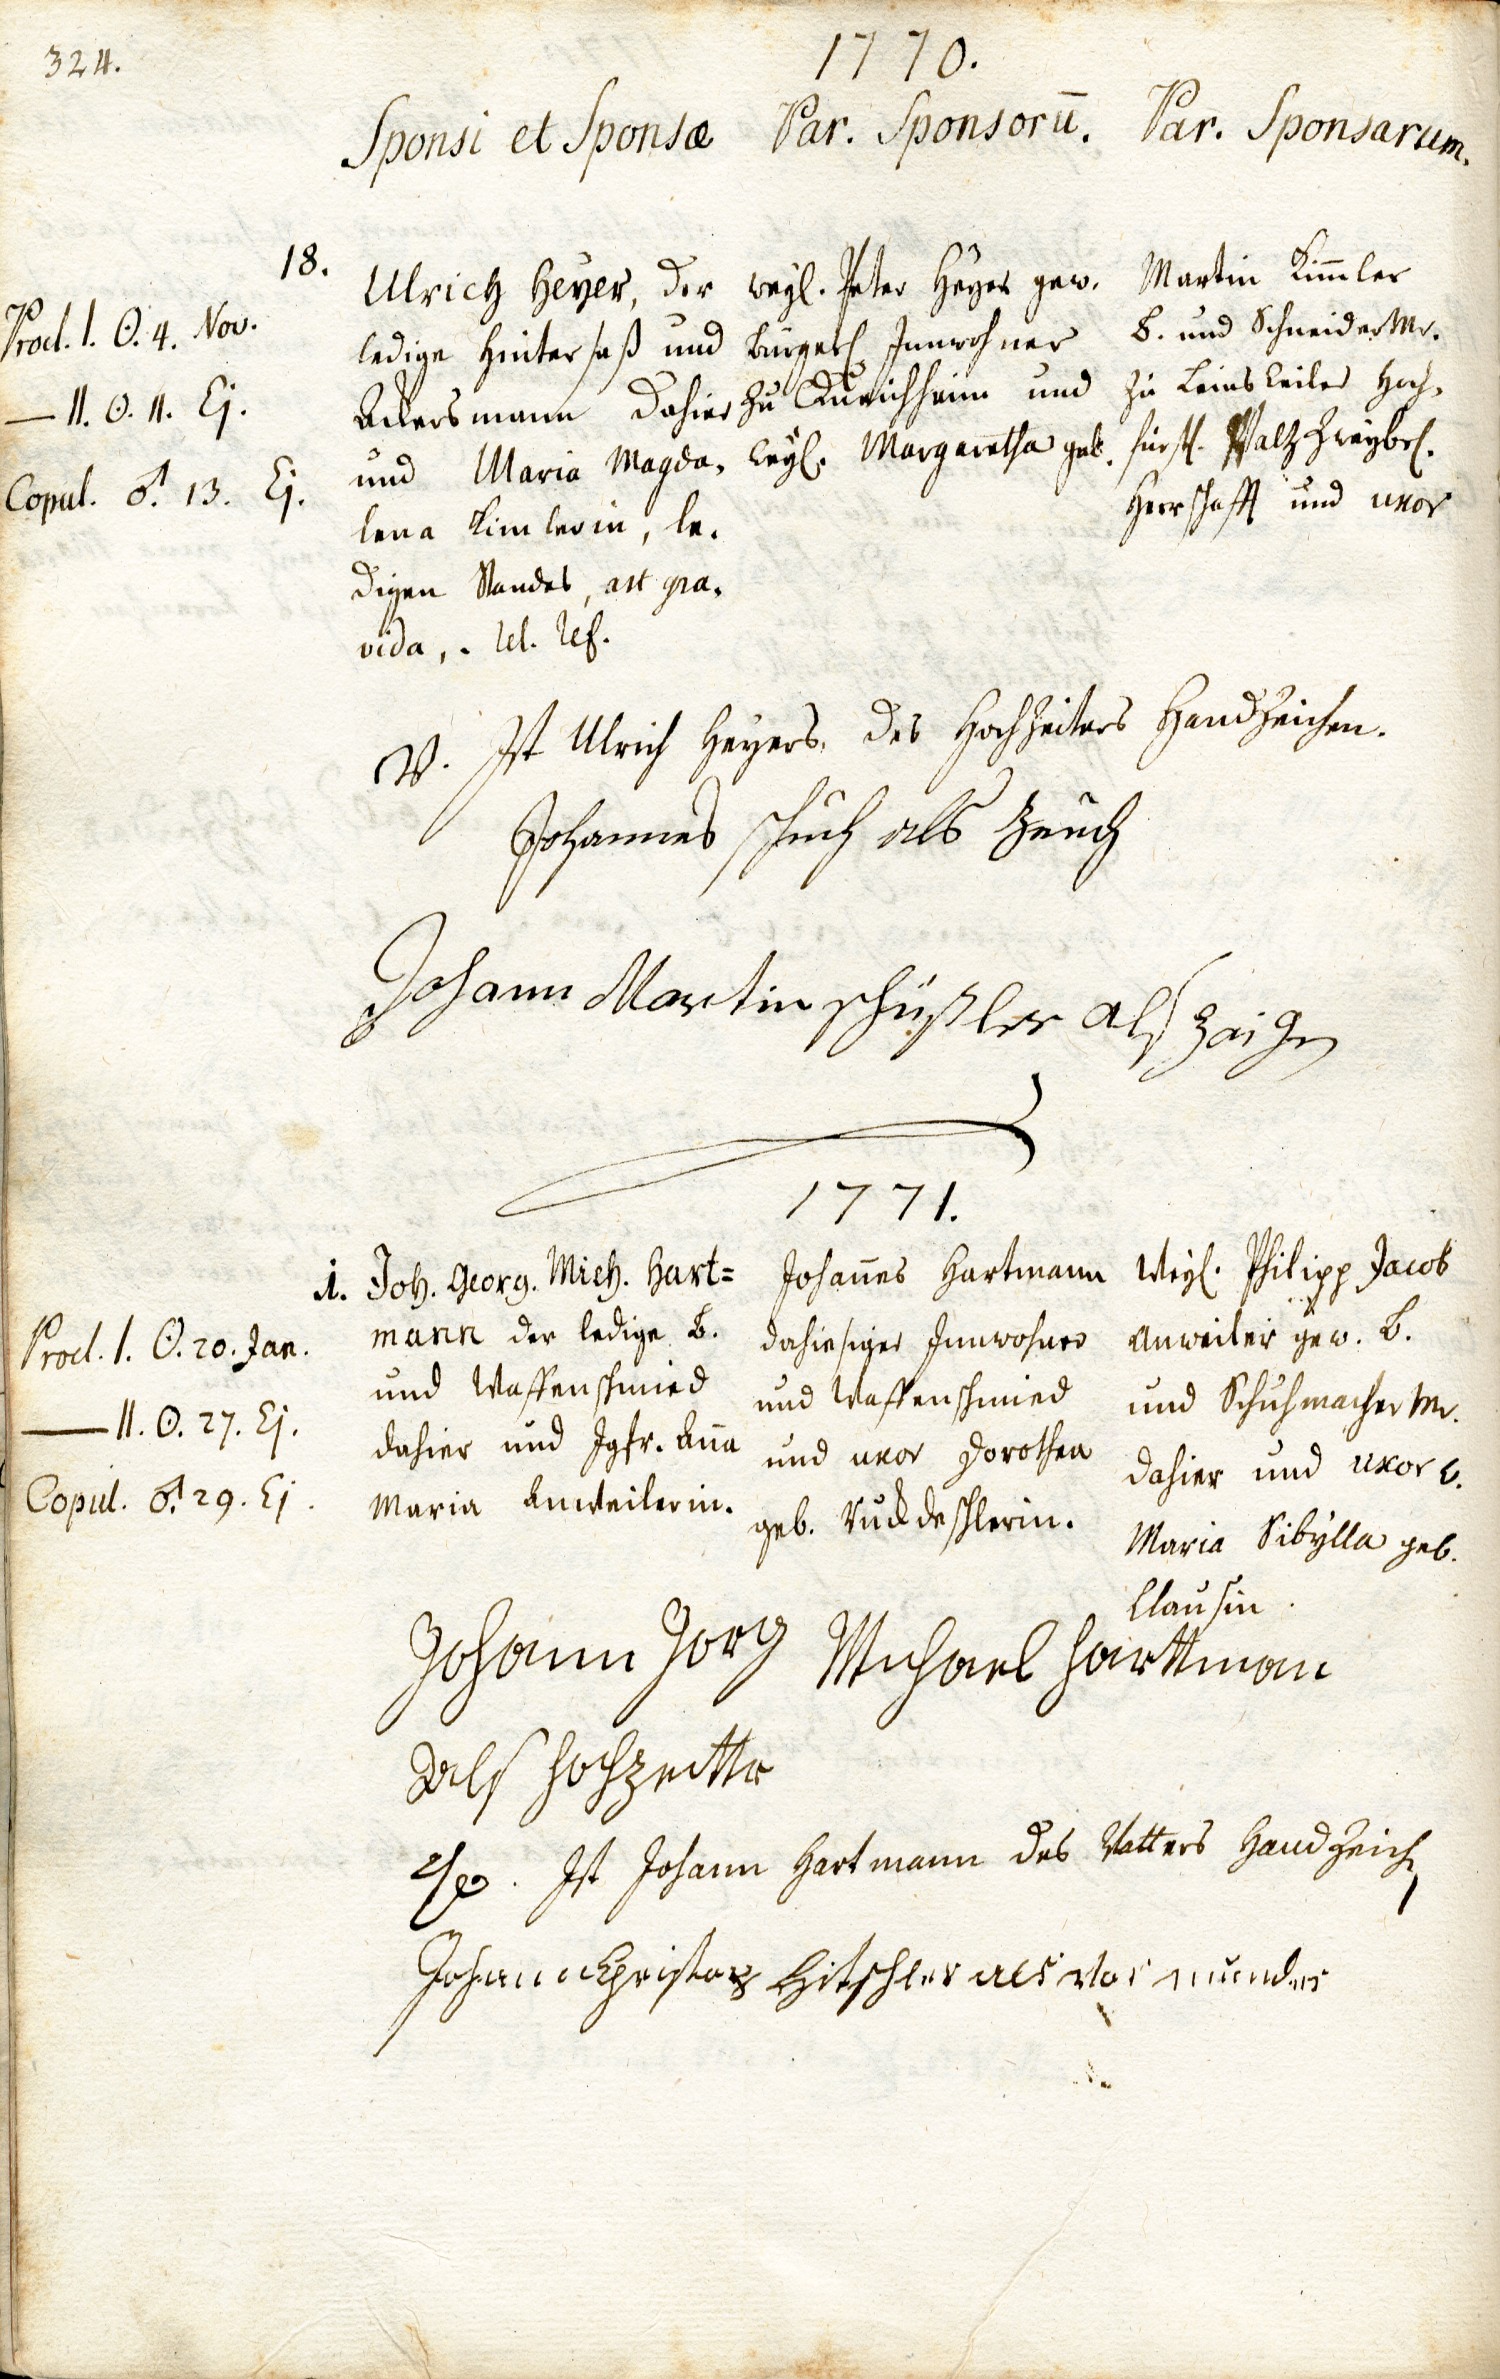 324.
1770.
Sponsi et Sponsæ Par. Sponsorū. Par. Sponsarum.
18.
Procl. I. ☉. 4. Nov.
— II. ☉. 11. Ej.
Copul. ♂. 13. Ej.
Ulrich Heyer, der
ledige Hintersaß und
Ackersmann dahier
und Maria Magda-
lena Kimlerin, le-
digen Standes, ast gra-
vida, . rel. ref.
weyl. Peter Heyer gew.
burgerl. Innwohner
zu und
weyl. Margaretha geb.
Martin Kim̄ler
B. und Schneider Mr.
zu Leinsweiler Hoch-
fürstl. Pfalz Zweybr.
Herrschafft und uxor
W. Ist Ulrich Heyers, des Hochzeiters Handzeichen.
Johannes schuch als Zeuch
Johann Martin schüßler als Zeigen
1771.
1.
Procl. I. ☉. 20. Jan.
— II. ☉. 27. Ej.
Copul. ♂. 29. Ej.
Joh. Georg. Mich. Hart=
mann der ledige B.
und Waffenschmied
dahier und Jgfr. Ann̄a
Maria Anweilerin.
Johan̄es Hartmann
dahiesiger Innwohner
und Waffenschmied
und uxor Dorothea
geb. Ruddeschlerin.
Weyl. Philipp Jacob
Anweiler gew. B.
und Schuhmacher Mr.
dahier und uxor
Maria Sibÿlla geb.
Clausin.
Johann Jorg Michael Harttman
Als Hochzeitter
. Ist Johann Hartmann des Vatters Handzeichen
Johann Christop Hitschler als vormunder